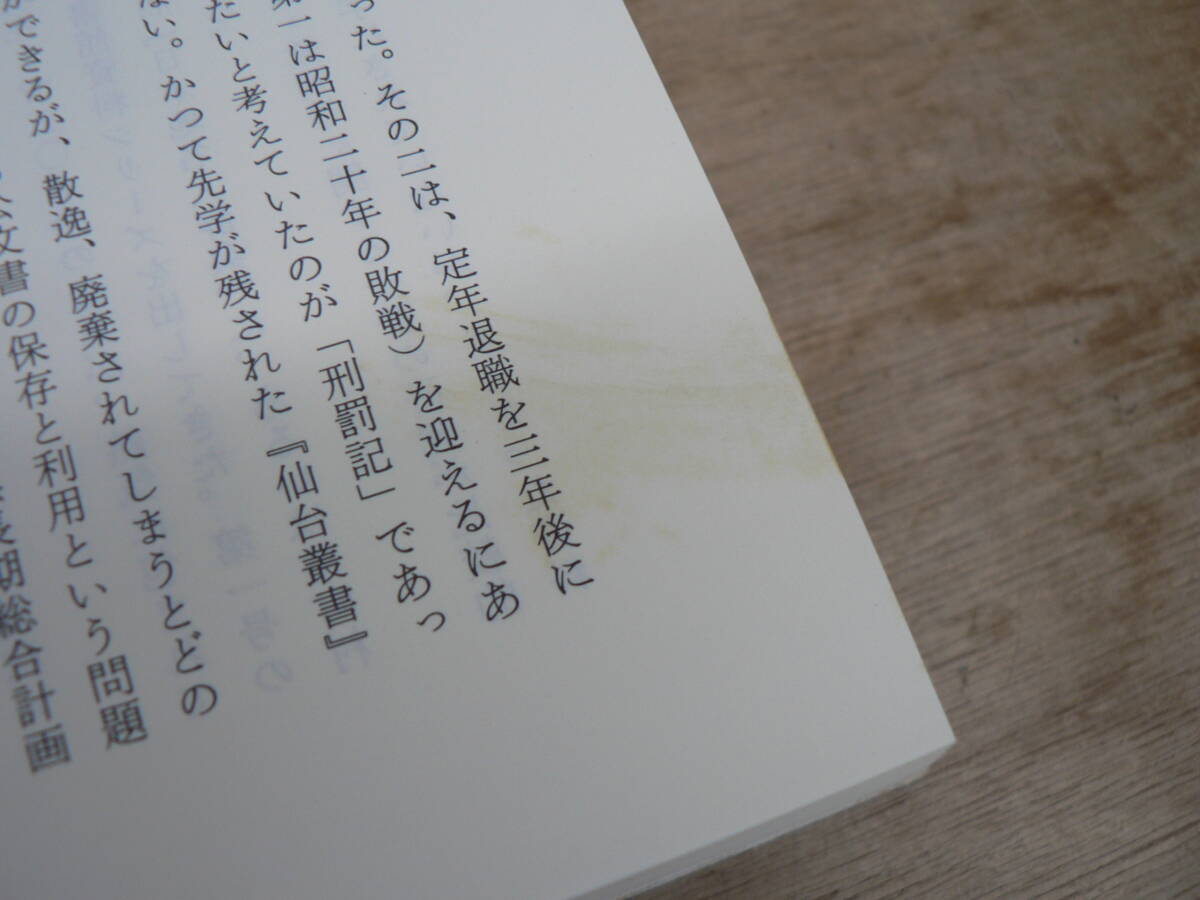 った。その二は、定年退職を三年後に
第一は昭和二十年の敗戦）を迎えるにあ
たいと考えていたのが「刑罰記」であっ
ない。かつて先学が残された『仙台叢書』
ができるが、散逸、廃棄されてしまうとどの
公文書の保存と利用という問題
長期総合計画